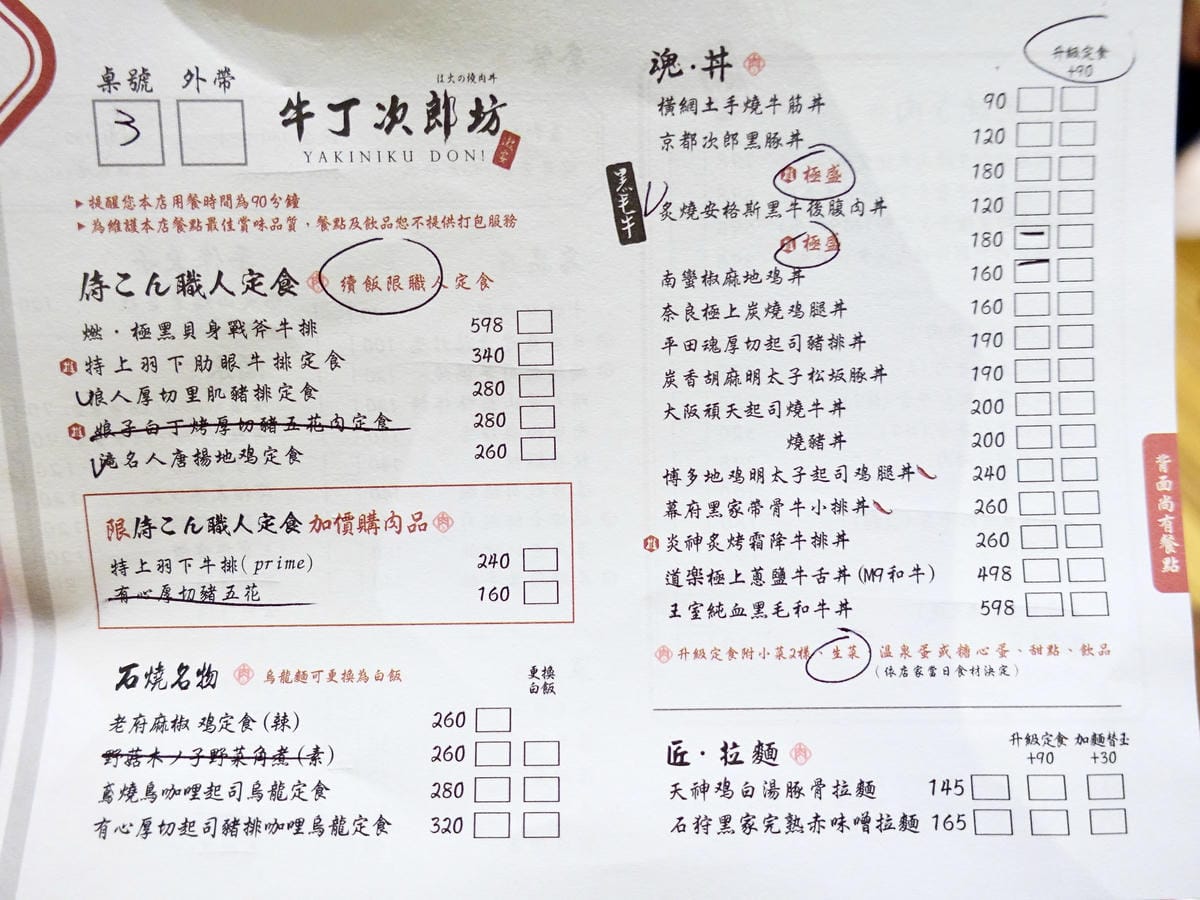 桌號 外帶
3
は火の燒肉丼
牛丁次郎坊
YAKINIKU DON!
▸提醒您本店用餐時間為90分鐘
▸為維護本店餐點最佳賞味品質,餐點及飲品您不提供打包服務
侍こん職人定食 肉 續飯限職人定食
燃・極黑貝身戰斧牛排 598
特上羽下肋眼牛排定食 340
狼人厚切里肌豬排定食 280
娘子白丁烤厚切豬五花肉定食 280
滝名人唐揚地鸡定食 260
限侍こん職人定食加價購肉品 肉
特上羽下牛排(prime) 240
有心厚切豬五花 160
石燒名物 肉 烏龍麵可更換為白飯
更換
白飯
老府麻椒 鸡定食(辣) 260
野菇木ノ子野菜角煮(素) 260
鳶燒鳥咖哩起司烏龍定食 280
有心厚切起司豬排咖哩烏龍定食 320
魂・丼 肉
升級定食
+90
橫網土手燒牛筋丼 90
京都次郎黑豚丼 120
極盛 180
黑毛牛
炙燒安格斯黑牛後腹肉丼 120
極盛 180
南蠻椒麻地鸡丼 160
奈良極上炭燒鸡腿丼 160
平田魂厚切起司豬排丼 190
炭香胡麻明太子松坂豚丼 190
大阪頑天起司燒牛丼 200
燒豬丼 200
博多地鸡明太子起司鸡腿丼 240
幕府黑家帶骨牛小排丼 260
炎神炙烤霜降牛排丼 260
道樂極上蔥鹽牛舌丼(M9和牛) 498
王室純血黑毛和牛丼 598
肉 升級定食附小菜2樣、生菜 溫泉蛋或糖心蛋、甜點、飲品
(依店家當日食材決定)
背面尚有餐點
匠・拉麵 肉
升級定食 加麵替玉
+90 +30
天神鸡白湯豚骨拉麵 145
石狩黑家完熟赤味噌拉麵 165